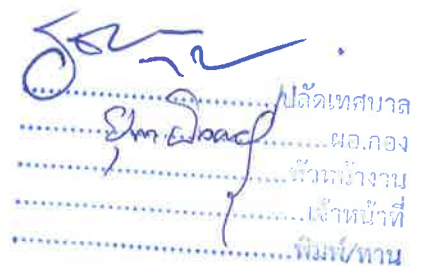 ปลัดเทศบาล
ผอ.กอง
หัวหน้างาน
เจ้าหน้าที่
พิมพ์/ทาน